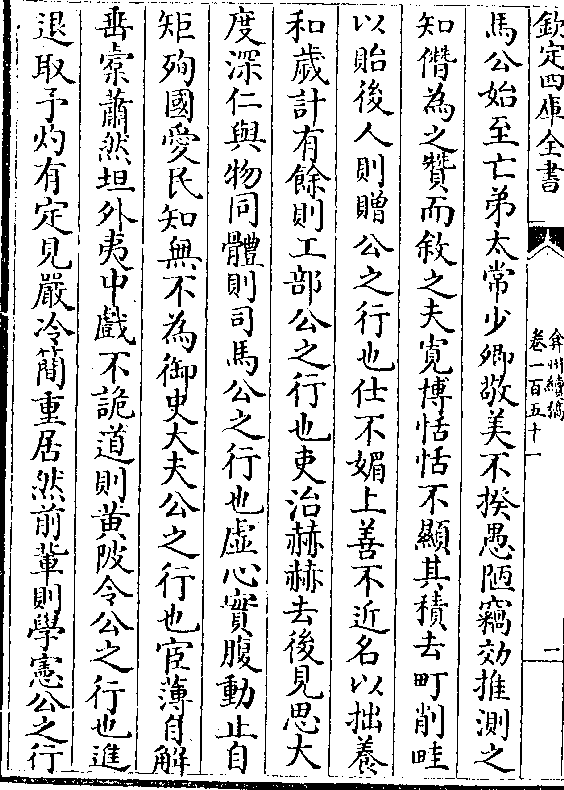 欽定四庫全書
弇州續稿
卷一百五十一
一
馬公始至亡弟太常少卿敬美不揆愚陋竊効推測之
知僭為之贊而敘之夫寛博恬恬不顯其積去町削畦
以貽後人則贈公之行也仕不媚上善不近名以拙養
和歲計有餘則工部公之行也吏治赫赫去後見思大
度深仁與物同體則司馬公之行也虛心實腹動止自
矩殉國愛民知無不為御史大夫公之行也宦薄自解
垂橐蕭然坦外夷中戲不詭道則黄陂令公之行也進
退取予灼有定見嚴冷簡重居然前軰則學憲公之行